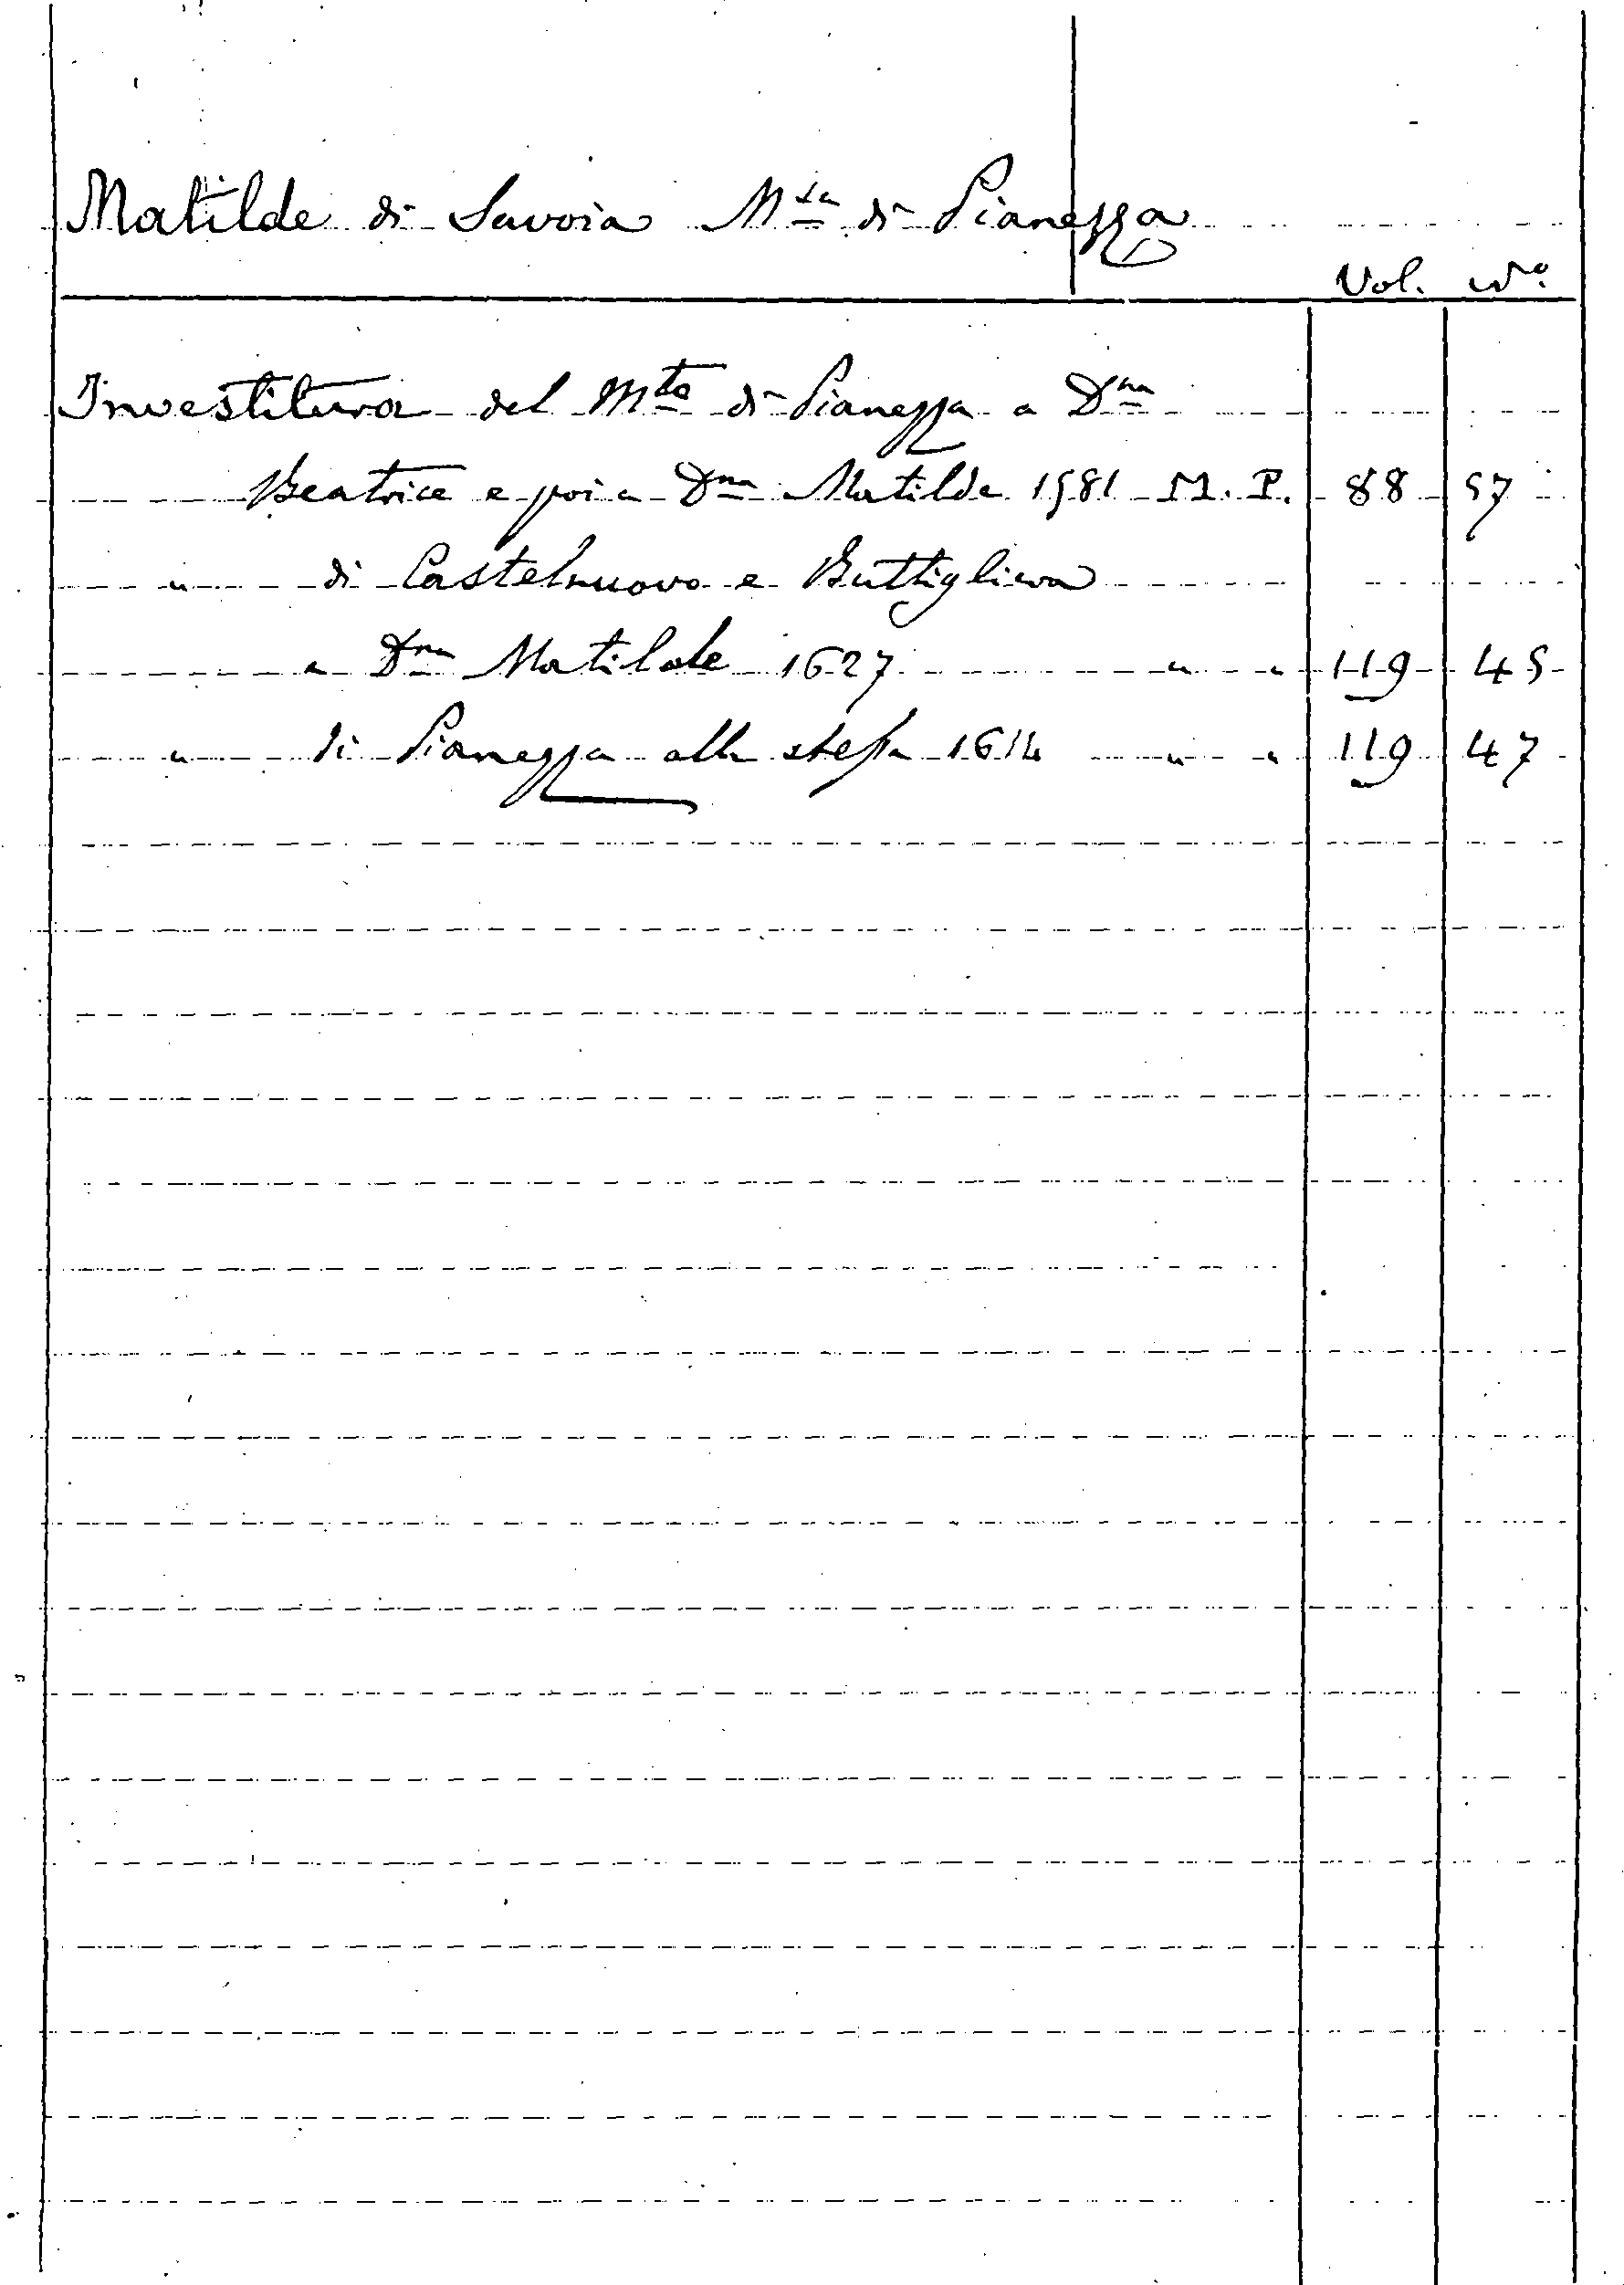 Matilde di Savoia M.sa di Pianezza
Vol. N.o
Investitura del M.to di Pianezza a D.na
Beatrice e poi a D.na Matilde 1581 M. P. 88 57
" di Castelnuovo e Buttigliera
a D.na Matilde 1627 " " 119 45
" di Pianezza alla stessa 1614 " " 119 47